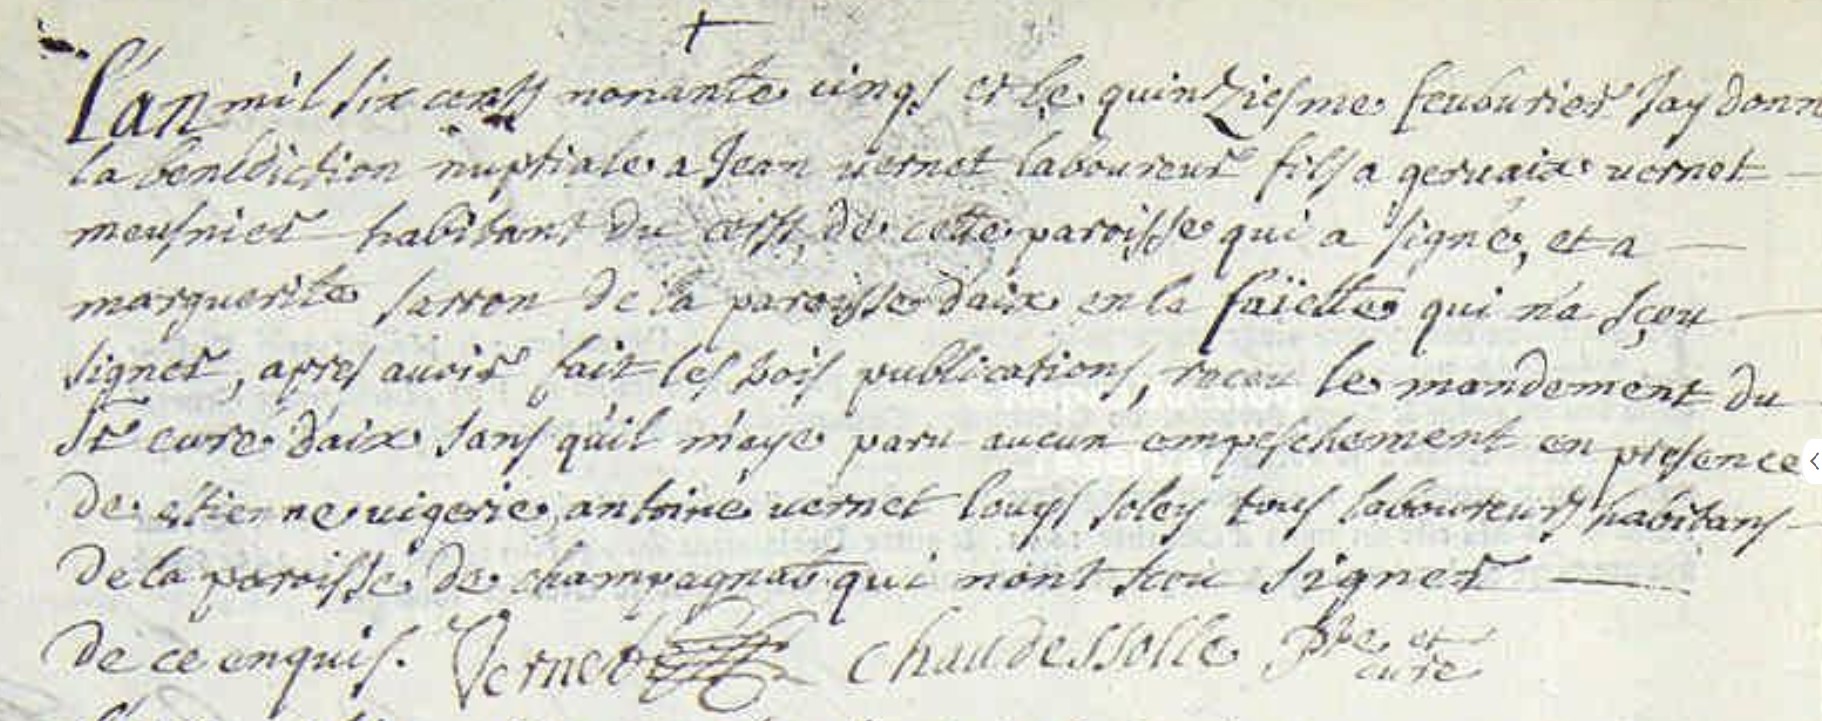 L'an mil six cents nonante cinqs et le quinziesme feubvrier Jay donn
la benediction nuptiale a Jean vernet laboureur fils a gervaix vernet
meusnier habitant du de cette paroisse qui a signé, et a
marguerite sarron de la paroisse d'aix en la faïette qui n'a sçeu
signer, apres avoir fait les trois publications, receu le mandement du
Sr curé d'aix sans qu'il m'aye paru aucun empeschement en presence
de etienne vigerie, antoine vernet louys soley tous laboureurs habitans
de la paroisse de champagnat qui nont sceu signer
de ce enquis. Vernet chaudessolle Pbre et
curé